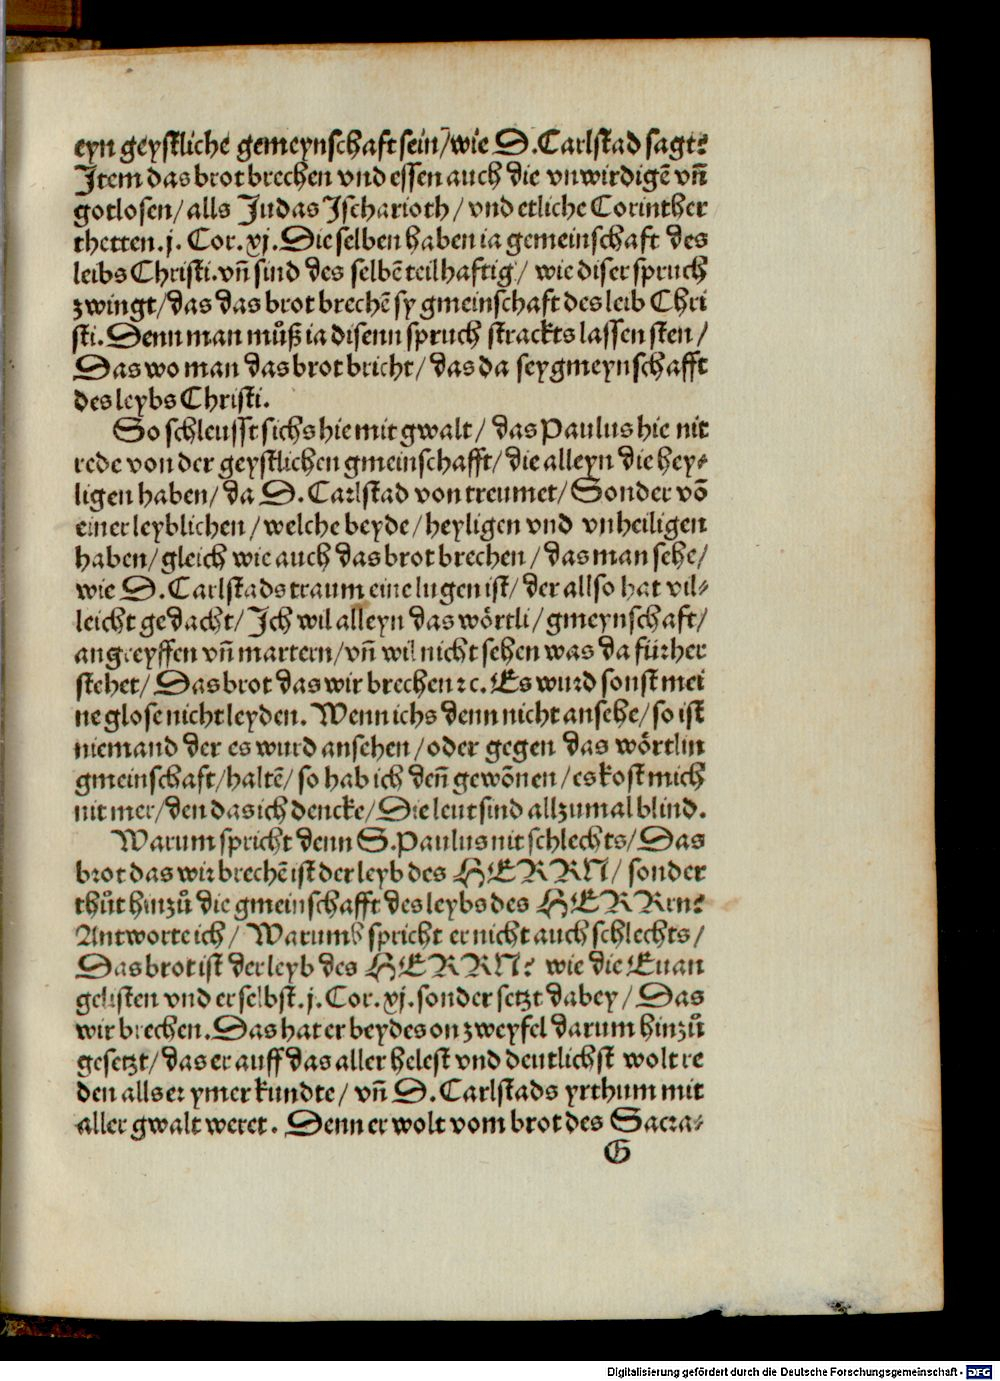 eyn geystliche gemeynschaft sein/wie D.Carlstad sagt?
Item das brot brechen vnd essen auch die vnwirdigē vñ
gotlosen/alls Judas Ischarioth/vnd etliche Corinther
thetten.j. Cor.xj.Die selben haben ia gemeinschaft des
leibs Christi.vñ sind des selbē teilhaftig/ wie diser spruch
zwingt/das das brot brechē sy gmeinschaft des leib Chri
sti.Denn man můß ia disenn spruch strackts lassen sten/
Das wo man das brot bricht/das da sey gmeynschafft
des leybs Christi.
So schleusst sichs hie mit gwalt/ das Paulus hie nit
rede von der geystlichen gmeinschafft/die alleyn die hey⸗
ligen haben/da D. Carlstad von treumet/Sonder vō
einer leyblichen/welche beyde/heyligen vnd vnheiligen
haben/gleich wie auch das brot brechen/das man sehe/
wie D. Carlstads traum eine lugen ist/der allso hat vil⸗
leicht gedacht/Ich wil alleyn das wörtli/gmeynschaft/
angreyffen vñ martern/vñ wil nicht sehen was da fürher
stehet/Das brot das wir brechen ꝛc.Es wurd sonst mei
ne glose nicht leyden. Wenn ichs denn nicht ansehe/so ist
niemand der es wurd ansehen/oder gegen das wörtlin
gmeinschaft/haltē/so hab ich deñ gewōnen/es kost mich
nit mer/den das ich dencke/Die leut sind allzumal blind.
Warum spricht denn S.Paulus nit schlechts/Das
brot das wir brechē ist der leyb des HERRN/sonder
thůt hinzů die gmeinschafft des leybs des HERRen?
Antworte ich/ Warumb spricht er nicht auch schlechts/
Das brot ist der leyb des HERRN? wie die Euan
gelisten vnd er selbst.j.Cor.xj.sonder setzt dabey/Das
wir brechen.Das hat er beydes on zweyfel darum hinzů
gesetzt/das er auff das aller helest vnd deutlichst wolt re
den alls er ymer kundte/ vñ D. Carlstads yrthum mit
aller gwalt weret. Denn er wolt vom brot des Sacra⸗
G
Digitalisierung gefördert durch die Deutsche Forschungsgemeinschaft - DFG